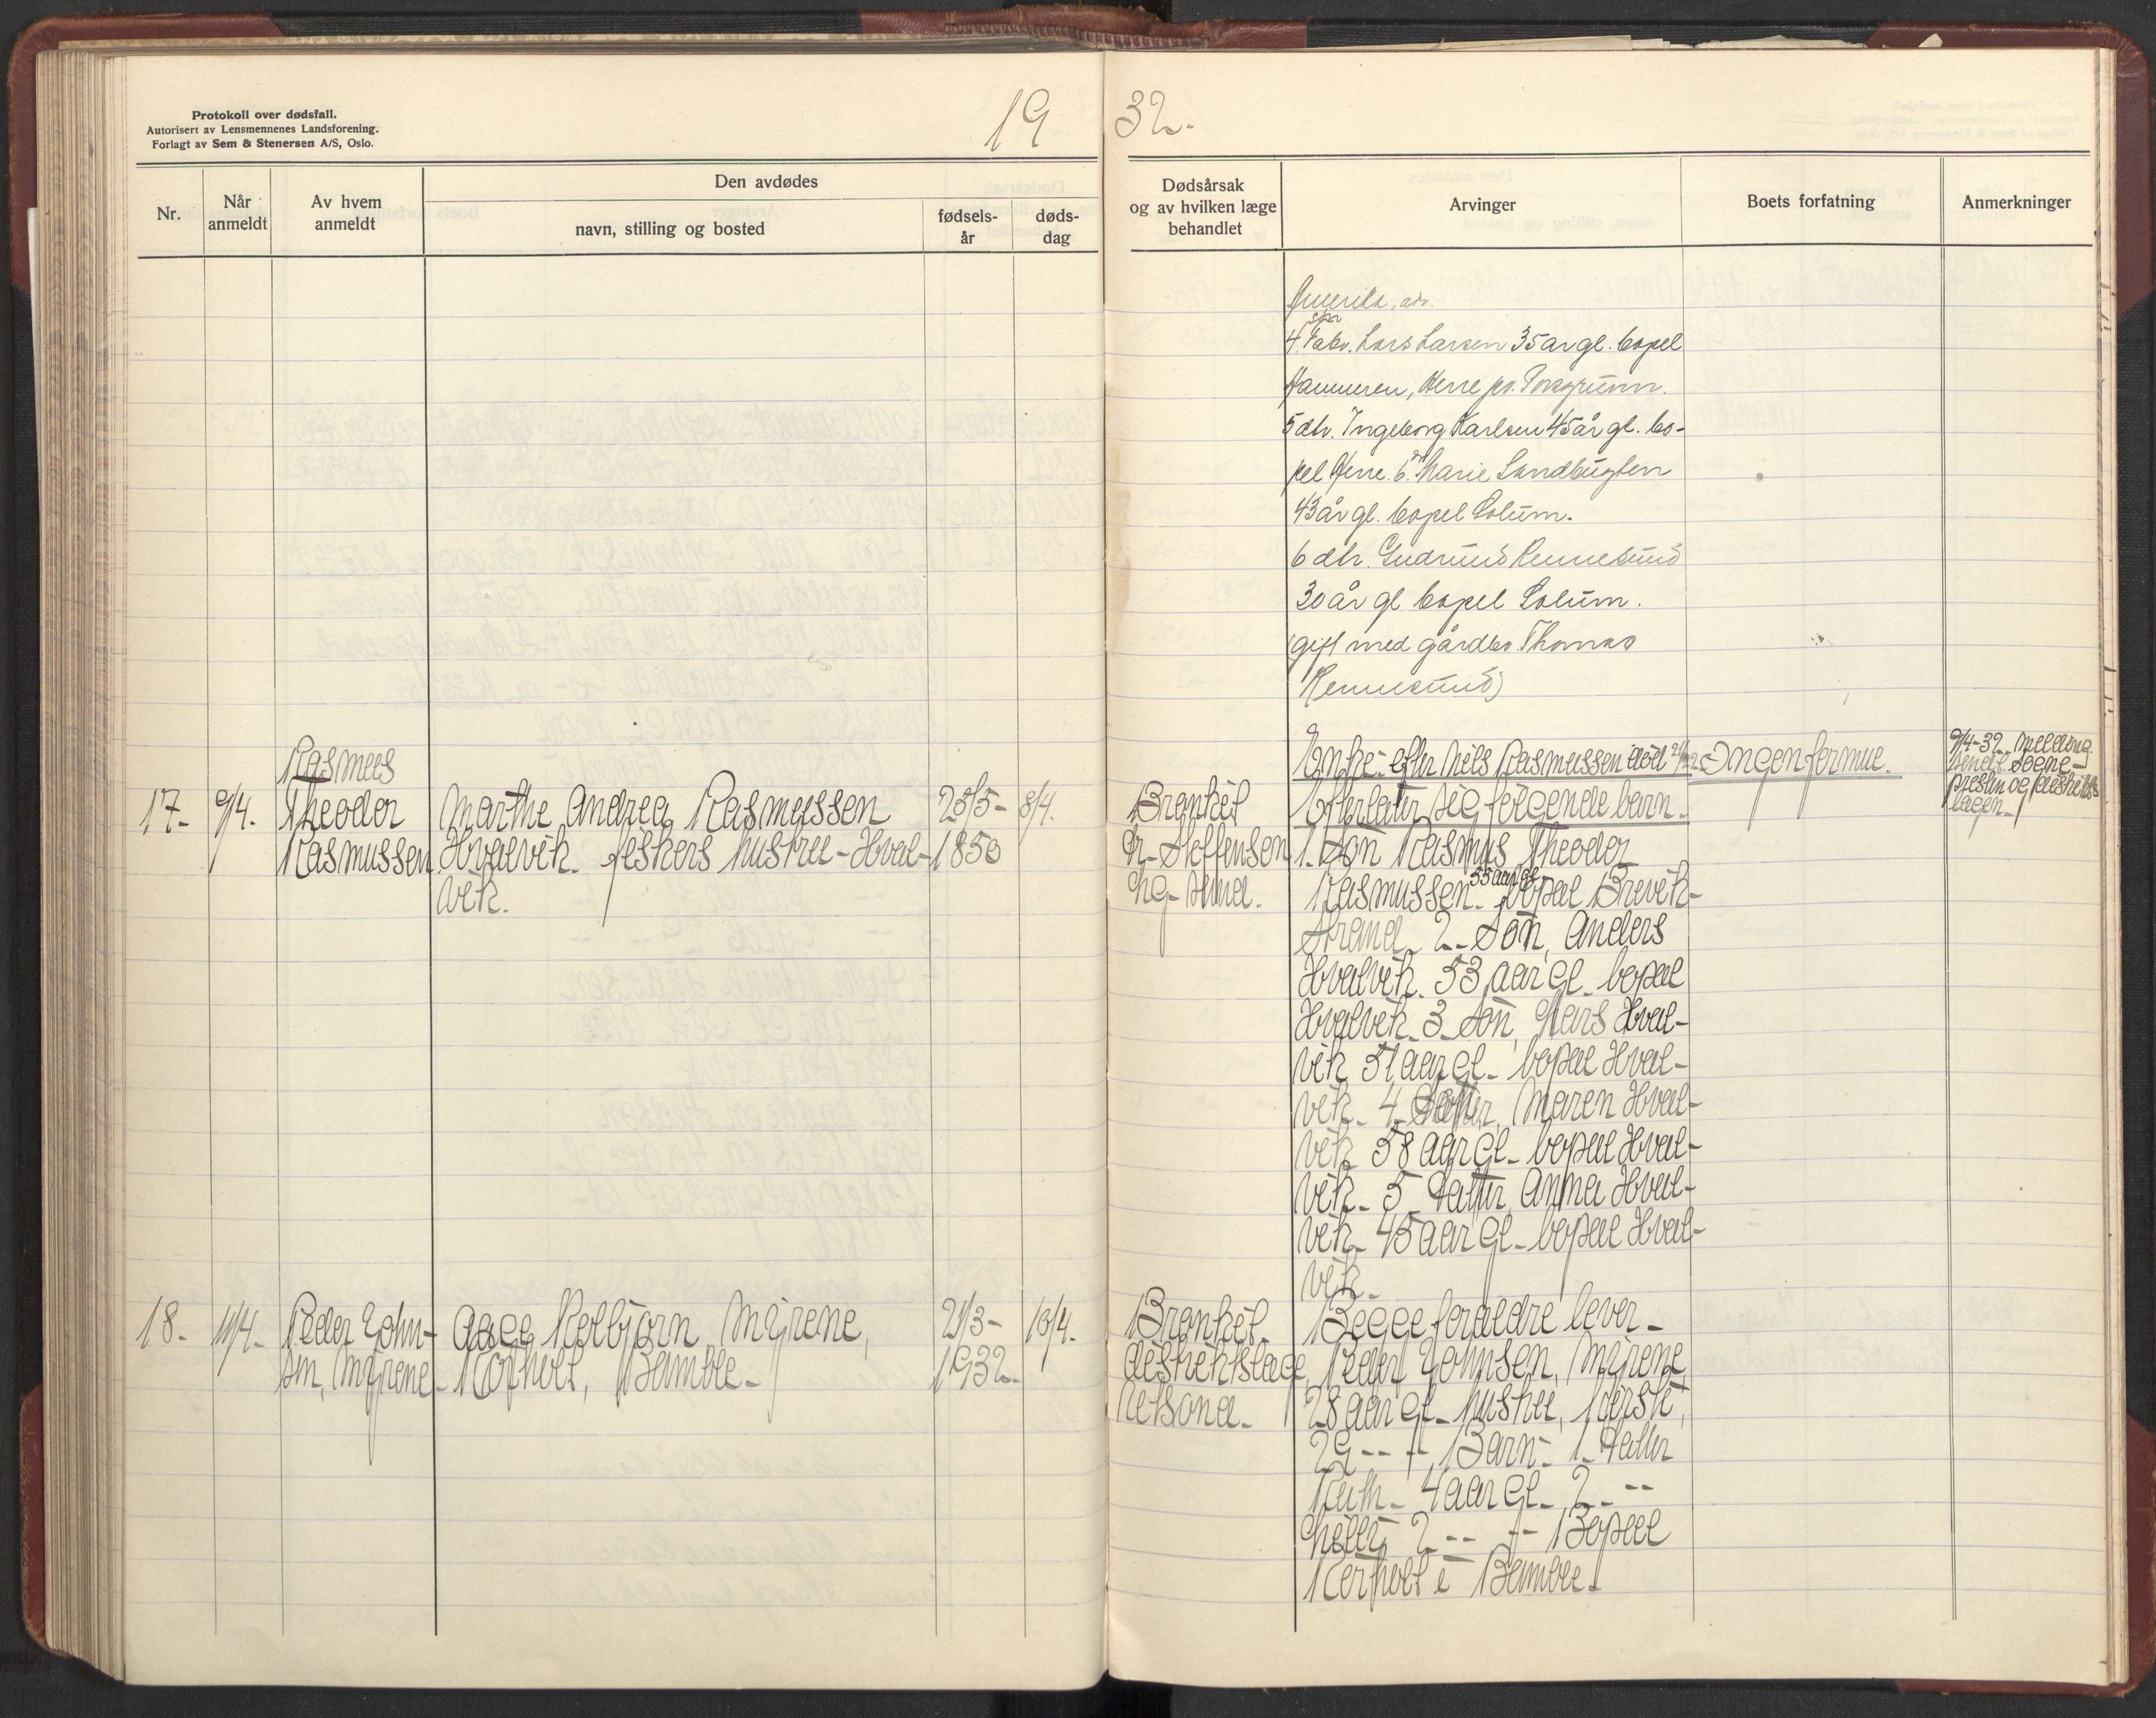 Protokoll over dødsfall.
Autorisert av Lensmennenes Landsforening.
Forlagt av Sem & Stenersen A/S, Oslo.
19 32.
Nr.
Når anmeldt
Av hvem anmeldt
Den avdødes
navn, stilling og bosted
fødsels-
år
døds-
dag
Dødsårsak
og av hvilken læge
behandlet
Arvinger
Boets forfatning
Anmerkninger
Amerika,
4. Lars Larsen 35 år gl. bopel
Hammeren, Herre pr. Porsgrunn.
5 dtr. Ingeborg Karlsen 45 år gl. bo-
pel Herre. 6. Marie Sandbugten
43 år gl. bopel Solum.
6 dtr. Gudrun
30 år gl bopel Solum.
(gift med gårdbr. Thomas
17-
9/4.
Rasmus
Theodor
Rasmussen
Marthe Andrea Rasmussen
Hvalvik. fiskers hustru - Hval-
vik.
25/5-
1850
8/4.
Bronkit
Dr. Steffensen
Enke efter Niels Rasmussen död
Efterlater sig følgende barn.
1. Sön Rasmus Theodor
Rasmussen. 55 aar gl. bopæl Brevik-
strand. 2. Sön, Anders
Hvalvik. 53 aar gl. bopæl
Hvalvik. 3. Sön, Lars Hval-
vik 51 aar gl. bopæl Hval-
vik. 4. Datter, Maren Hval-
vik 58 aar gl. bopæl Hval-
vik. 5 Datter, Anna Hval-
vik. 45 aar gl. bopæl Hval-
vik.
Ingen formue.
9/4-32. Melding
sendt Sogne-
presten og distrikts
lægen.
18.
11/4.
Peder John-
sen, Myrene
Aage Kolbjörn Myrene,
Rörholt, Bamble.
21/3-
1932.
10/4.
Bronkit.
distriktslæge
Begge foreldre lever.
Peder Johnsen, Myrene,
28 aar gl. hustru, Kirsti,
29 -- -- Barn: 1. Datter
Ruth. 4 aar gl. 2. --
2 -- -- Bopæl
Rörholt i Bamble.